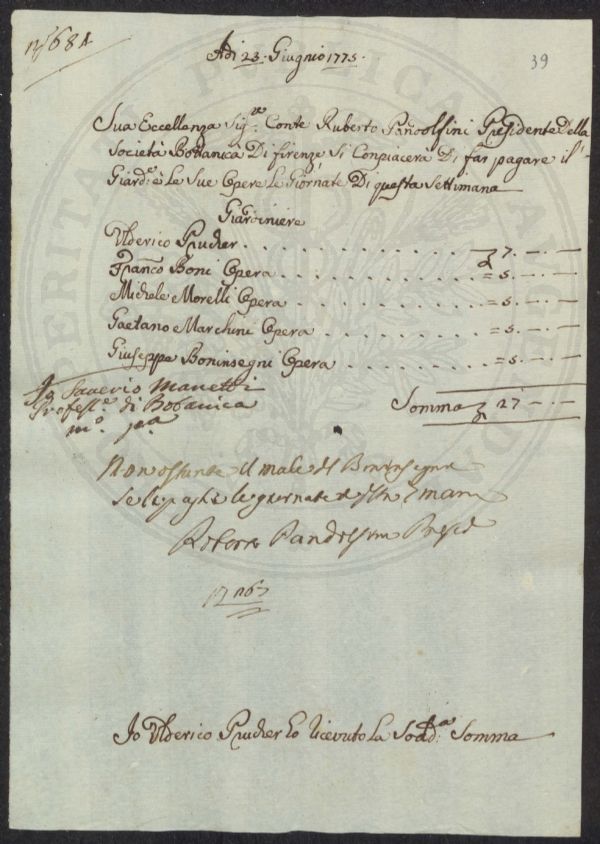 N.º 684
39
Adi 23. Giugnio 1775.
Sua Eccellenza Sig.re Conte Ruberto Pandolfini Presidente Della
Società Bottanica Di firenze Si Conpiacerà Di far pagare il
Giard.e e Le Sue Opere Le Giornate Di questa Settimana
Giardiniere
Ulderico Prucher . . . . . . 7. — . —
Franco Boni Opera . . . . . . = 5. — . —
Michele Morelli Opera . . . . . . = 5. — . —
Gaetano Marchini Opera . . . . . . = 5. — . —
Giuseppe Boninsegni Opera . . . . . . = 5. — . —
Io Saverio Manetti
Profess.e di Botanica
m.o p.a
Somma 27 — . —
Non ostante il male del Boninsegni
se li paghi le giornate
Roberto Pandolfini Presid
Io Ulderico Prucher ho ricevuto La Sodd.a Somma